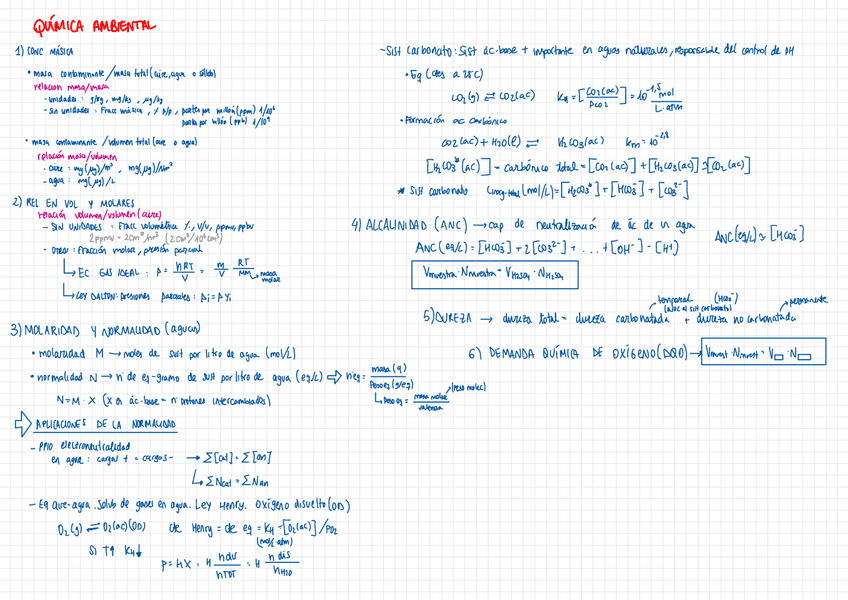 QUÍMICA AMBIENTAL
1) CONC MÁSICA
• masa contaminante / masa total (aire, agua o sólido)
relación masa/masa
- unidades: g/kg, mg/kg, µg/kg
- sin unidades: Frac másica, % p/p, partes por millón (ppm) 1/10⁶
partes por billón (ppb) 1/10⁹
• masa contaminante / volumen total (aire o agua)
relación masa/volumen
- aire: mg(µg)/m³, mg(µg)/Nm³
- agua: mg(µg)/L
2) REL EN VOL Y MOLARES
relación volumen/volumen (aire)
- SIN UNIDADES: Fracc volumétrica %, V/V, ppmv, ppbv
2ppmv = 2cm³/m³ (2cm³/10⁶cm³)
- Otras: Fracción molar, presión parcial
↳ EC GAS IDEAL: P = nRT/V = m/V · RT/Mm → masa molar
↳ LEY DALTON: presiones parciales: Pi = P Yi
3) MOLARIDAD Y NORMALIDAD (aguas)
• molaridad M → moles de sust por litro de agua (mol/L)
• normalidad N → nº de eq-gramo de sust por litro de agua (eq/L) ⇒ nºeq = masa (g) / Peso eq (g/eq)
↳ Peso eq = masa molar / valencia (peso molec)
N = M · X (X en ác-base = nº protones intercambiados)
⇒ APLICACIONES DE LA NORMALIDAD
- PPIO electroneutralidad
en agua: cargas + = cargas - → Σ[cat] = Σ[an]
↳ ΣNcat = ΣNan
- Eq aire-agua. Solub de gases en agua. Ley Henry. Oxígeno disuelto (OD)
O₂(g) ⇌ O₂(ac)(OD) cte Henry = cte eq = KH = [O₂(ac)] / PO₂
(mol/L·atm)
Si T↑ KH↓
P = HX = H n dis / n TOT = H n dis / n H₂O
- Sist carbonato: Sist ác-base + importante en aguas naturales, responsable del control de pH
• Eq (ctes a 25ºC)
CO₂(g) ⇌ CO₂(ac) KH = [CO₂(ac)] / PCO₂ = 10⁻¹,⁵ mol / L·atm
• Formación ac carbónico
CO₂(ac) + H₂O(l) ⇌ H₂CO₃(ac) Km = 10⁻²,⁸
[H₂CO₃*(ac)] = carbónico total = [CO₂(ac)] + [H₂CO₃(ac)] ≃ [CO₂(ac)]
* Sist carbonato Cinorg-total (mol/L) = [H₂CO₃*] + [HCO₃⁻] + [CO₃²⁻]
4) ALCALINIDAD (ANC) → cap de neutralización de ác de un agua
ANC (eq/L) = [HCO₃⁻] + 2[CO₃²⁻] + ... + [OH⁻] - [H⁺]
ANC (eq/L) ≃ [HCO₃⁻]
Vmuestra · Nmuestra = VH₂SO₄ · NH₂SO₄
temporal (HCO₃⁻)
(ANC al sist carbonato)
permanente
5) DUREZA → dureza total = dureza carbonatada + dureza no carbonatada
6) DEMANDA QUÍMICA DE OXÍGENO (DQO) → Vmuest · Nmuest = V▭ · N▭